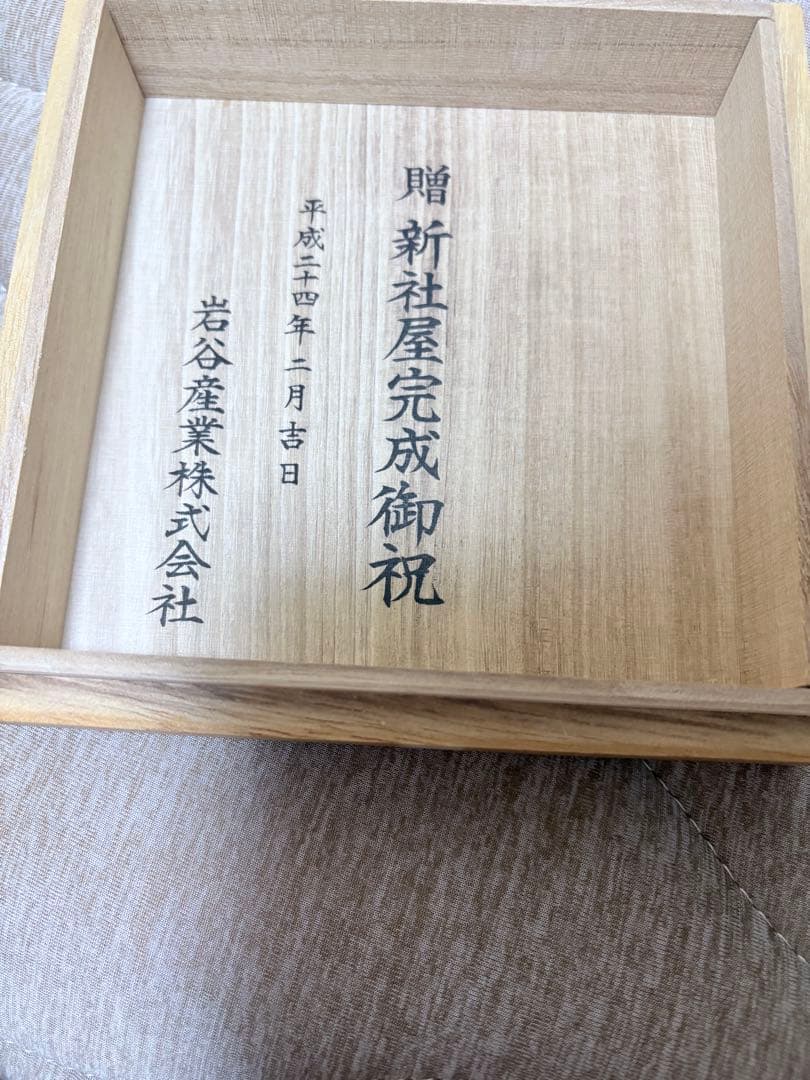 贈 新社屋完成御祝
平成二十四年 二月吉日
岩谷産業株式会社